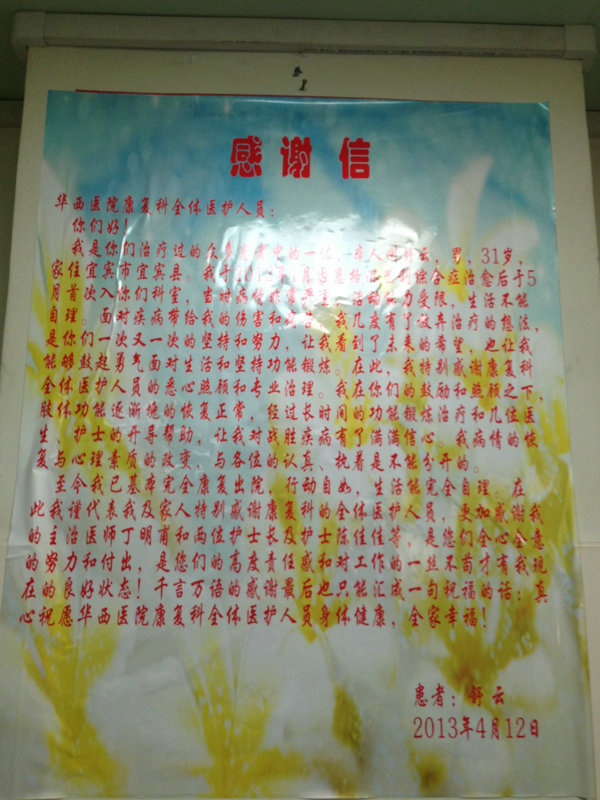 感谢信
华西医院康复科全体医护人员：
你们好！
我是你们治疗过的众多患者中的一位，本人叫舒云，男，31岁，
家住宜宾市宜宾县。我于2012年1月因患格林巴利综合症治愈后于5
月首次入你们科室，当时病情非常严重，活动能力受限，生活不能
自理。面对疾病带给我的伤害和痛苦，我几度有了放弃治疗的想法，
是你们一次又一次的坚持和努力，让我看到了未来的希望，也让我
能够鼓起勇气面对生活和坚持功能锻炼。在此，我特别感谢康复科
全体医护人员的悉心照顾和专业治理。我在你们的鼓励和照顾之下，
肢体功能逐渐塊的恢复正常，经过长时间的功能锻炼治疗和几位医
生、护士的开导帮助，让我对战胜疾病有了满满信心。我病情的恢
复与心理素质的改变，与各位的认真、执着是不能分开的。
至今我已基本完全康复出院，行动自如，生活能完全自理。在
此我谨代表我及家人特别感谢康复科的全体医护人员，更加感谢我
的主治医师丁明甫和两位护士长及护士陈佳佳等，是您们全心全意
的努力和付出，是您们的高度责任感和对工作的一丝不苟才有我现
在的良好状态！千言万语的感谢最后也只能汇成一句祝福的话：真
心祝愿华西医院康复科全体医护人员身体健康，全家幸福！
患者：舒云
2013年4月12日